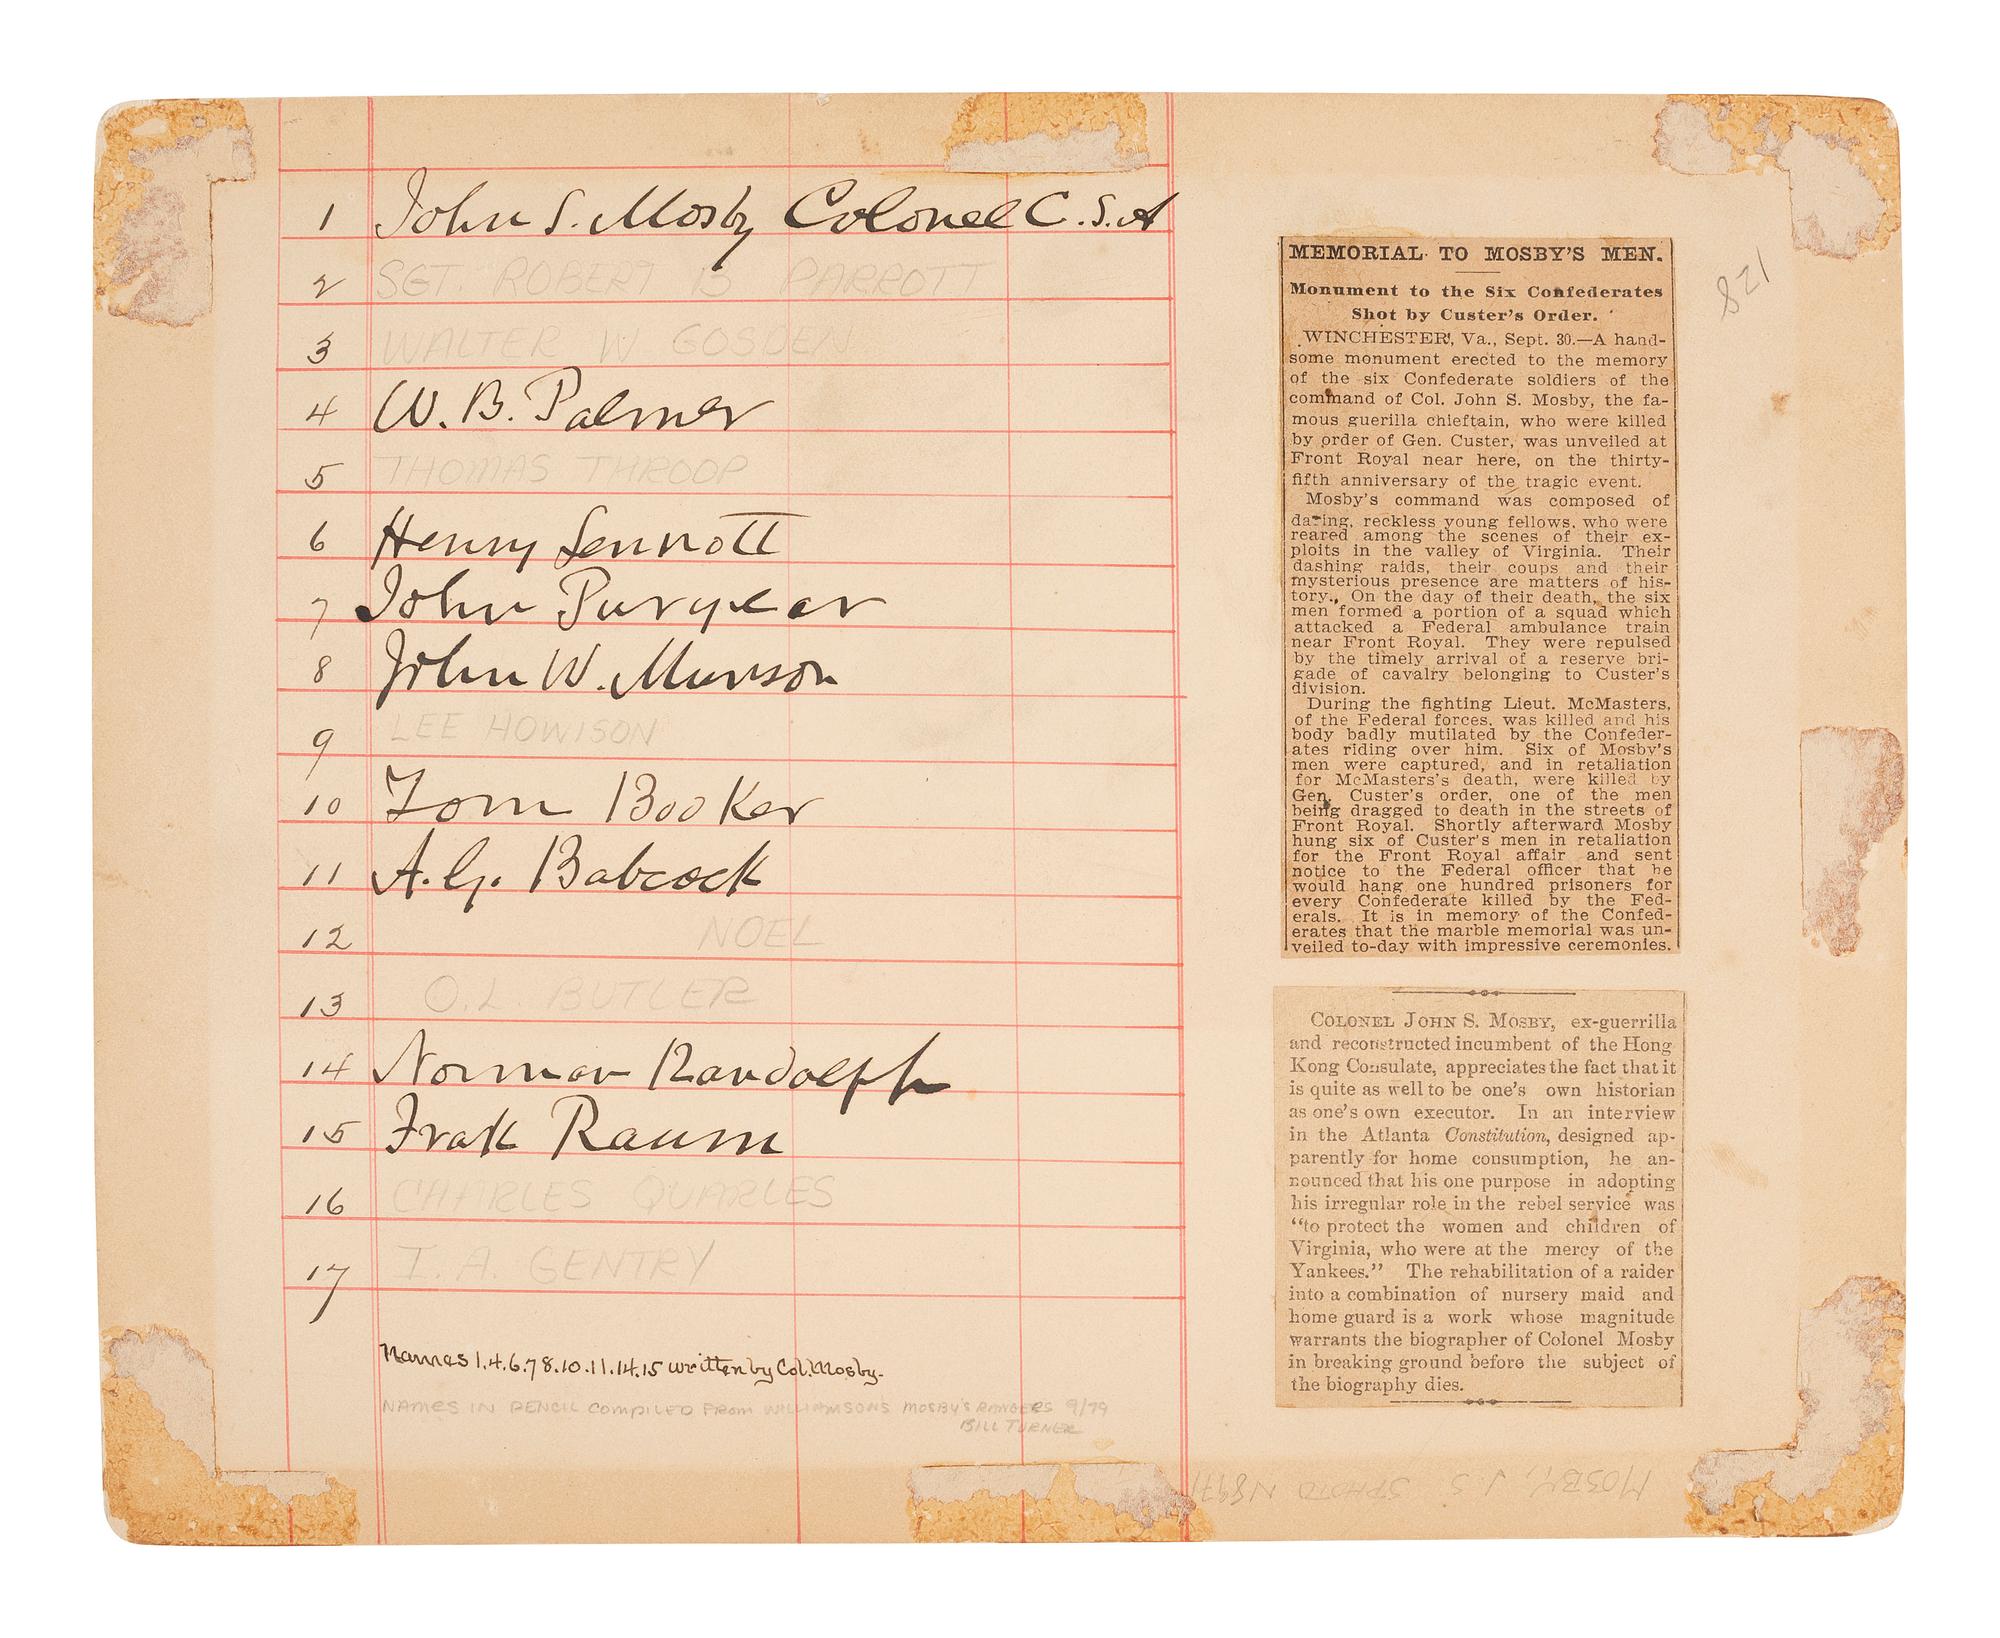 1 John S. Mosby Colonel C.S.A
2 SGT. ROBERT B PARROTT
3 WALTER W GOSDEN
4 W. B. Palmer
5 THOMAS THROOP
6 Henry Sennott
7 John Puryear
8 John W. Munson
9 LEE HOWISON
10 Tom Booker
11 A. G. Babcock
12 NOEL
13 O.L. BUTLER
14 Norman Randolph
15 Frak Raum
16 CHARLES QUARLES
17 I. A. GENTRY
Names 1.4.6.7 8.10.11.14.15 written by Col. Mosby.
NAMES IN PENCIL COMPILED FROM WILLIAMSONS MOSBY'S RANGERS 9/79
BILL TURNER
MEMORIAL TO MOSBY'S MEN.
Monument to the Six Confederates
Shot by Custer's Order.
WINCHESTER, Va., Sept. 30.—A hand-
some monument erected to the memory
of the six Confederate soldiers of the
command of Col. John S. Mosby, the fa-
mous guerilla chieftain, who were killed
by order of Gen. Custer, was unveiled at
Front Royal near here, on the thirty-
fifth anniversary of the tragic event.
Mosby's command was composed of
daring, reckless young fellows, who were
reared among the scenes of their ex-
ploits in the valley of Virginia. Their
dashing raids, their coups and their
mysterious presence are matters of his-
tory. On the day of their death, the six
men formed a portion of a squad which
attacked a Federal ambulance train
near Front Royal. They were repulsed
by the timely arrival of a reserve bri-
gade of cavalry belonging to Custer's
division.
During the fighting Lieut. McMasters,
of the Federal forces, was killed and his
body badly mutilated by the Confeder-
ates riding over him. Six of Mosby's
men were captured, and in retaliation
for McMasters's death, were killed by
Gen. Custer's order, one of the men
being dragged to death in the streets of
Front Royal. Shortly afterward Mosby
hung six of Custer's men in retaliation
for the Front Royal affair and sent
notice to the Federal officer that he
would hang one hundred prisoners for
every Confederate killed by the Fed-
erals. It is in memory of the Confed-
erates that the marble memorial was un-
veiled to-day with impressive ceremonies.
821
COLONEL JOHN S. MOSBY, ex-guerrilla
and reconstructed incumbent of the Hong
Kong Consulate, appreciates the fact that it
is quite as well to be one's own historian
as one's own executor. In an interview
in the Atlanta Constitution, designed ap-
parently for home consumption, he an-
nounced that his one purpose in adopting
his irregular role in the rebel service was
"to protect the women and children of
Virginia, who were at the mercy of the
Yankees." The rehabilitation of a raider
into a combination of nursery maid and
home guard is a work whose magnitude
warrants the biographer of Colonel Mosby
in breaking ground before the subject of
the biography dies.
MOSBY, J. S.